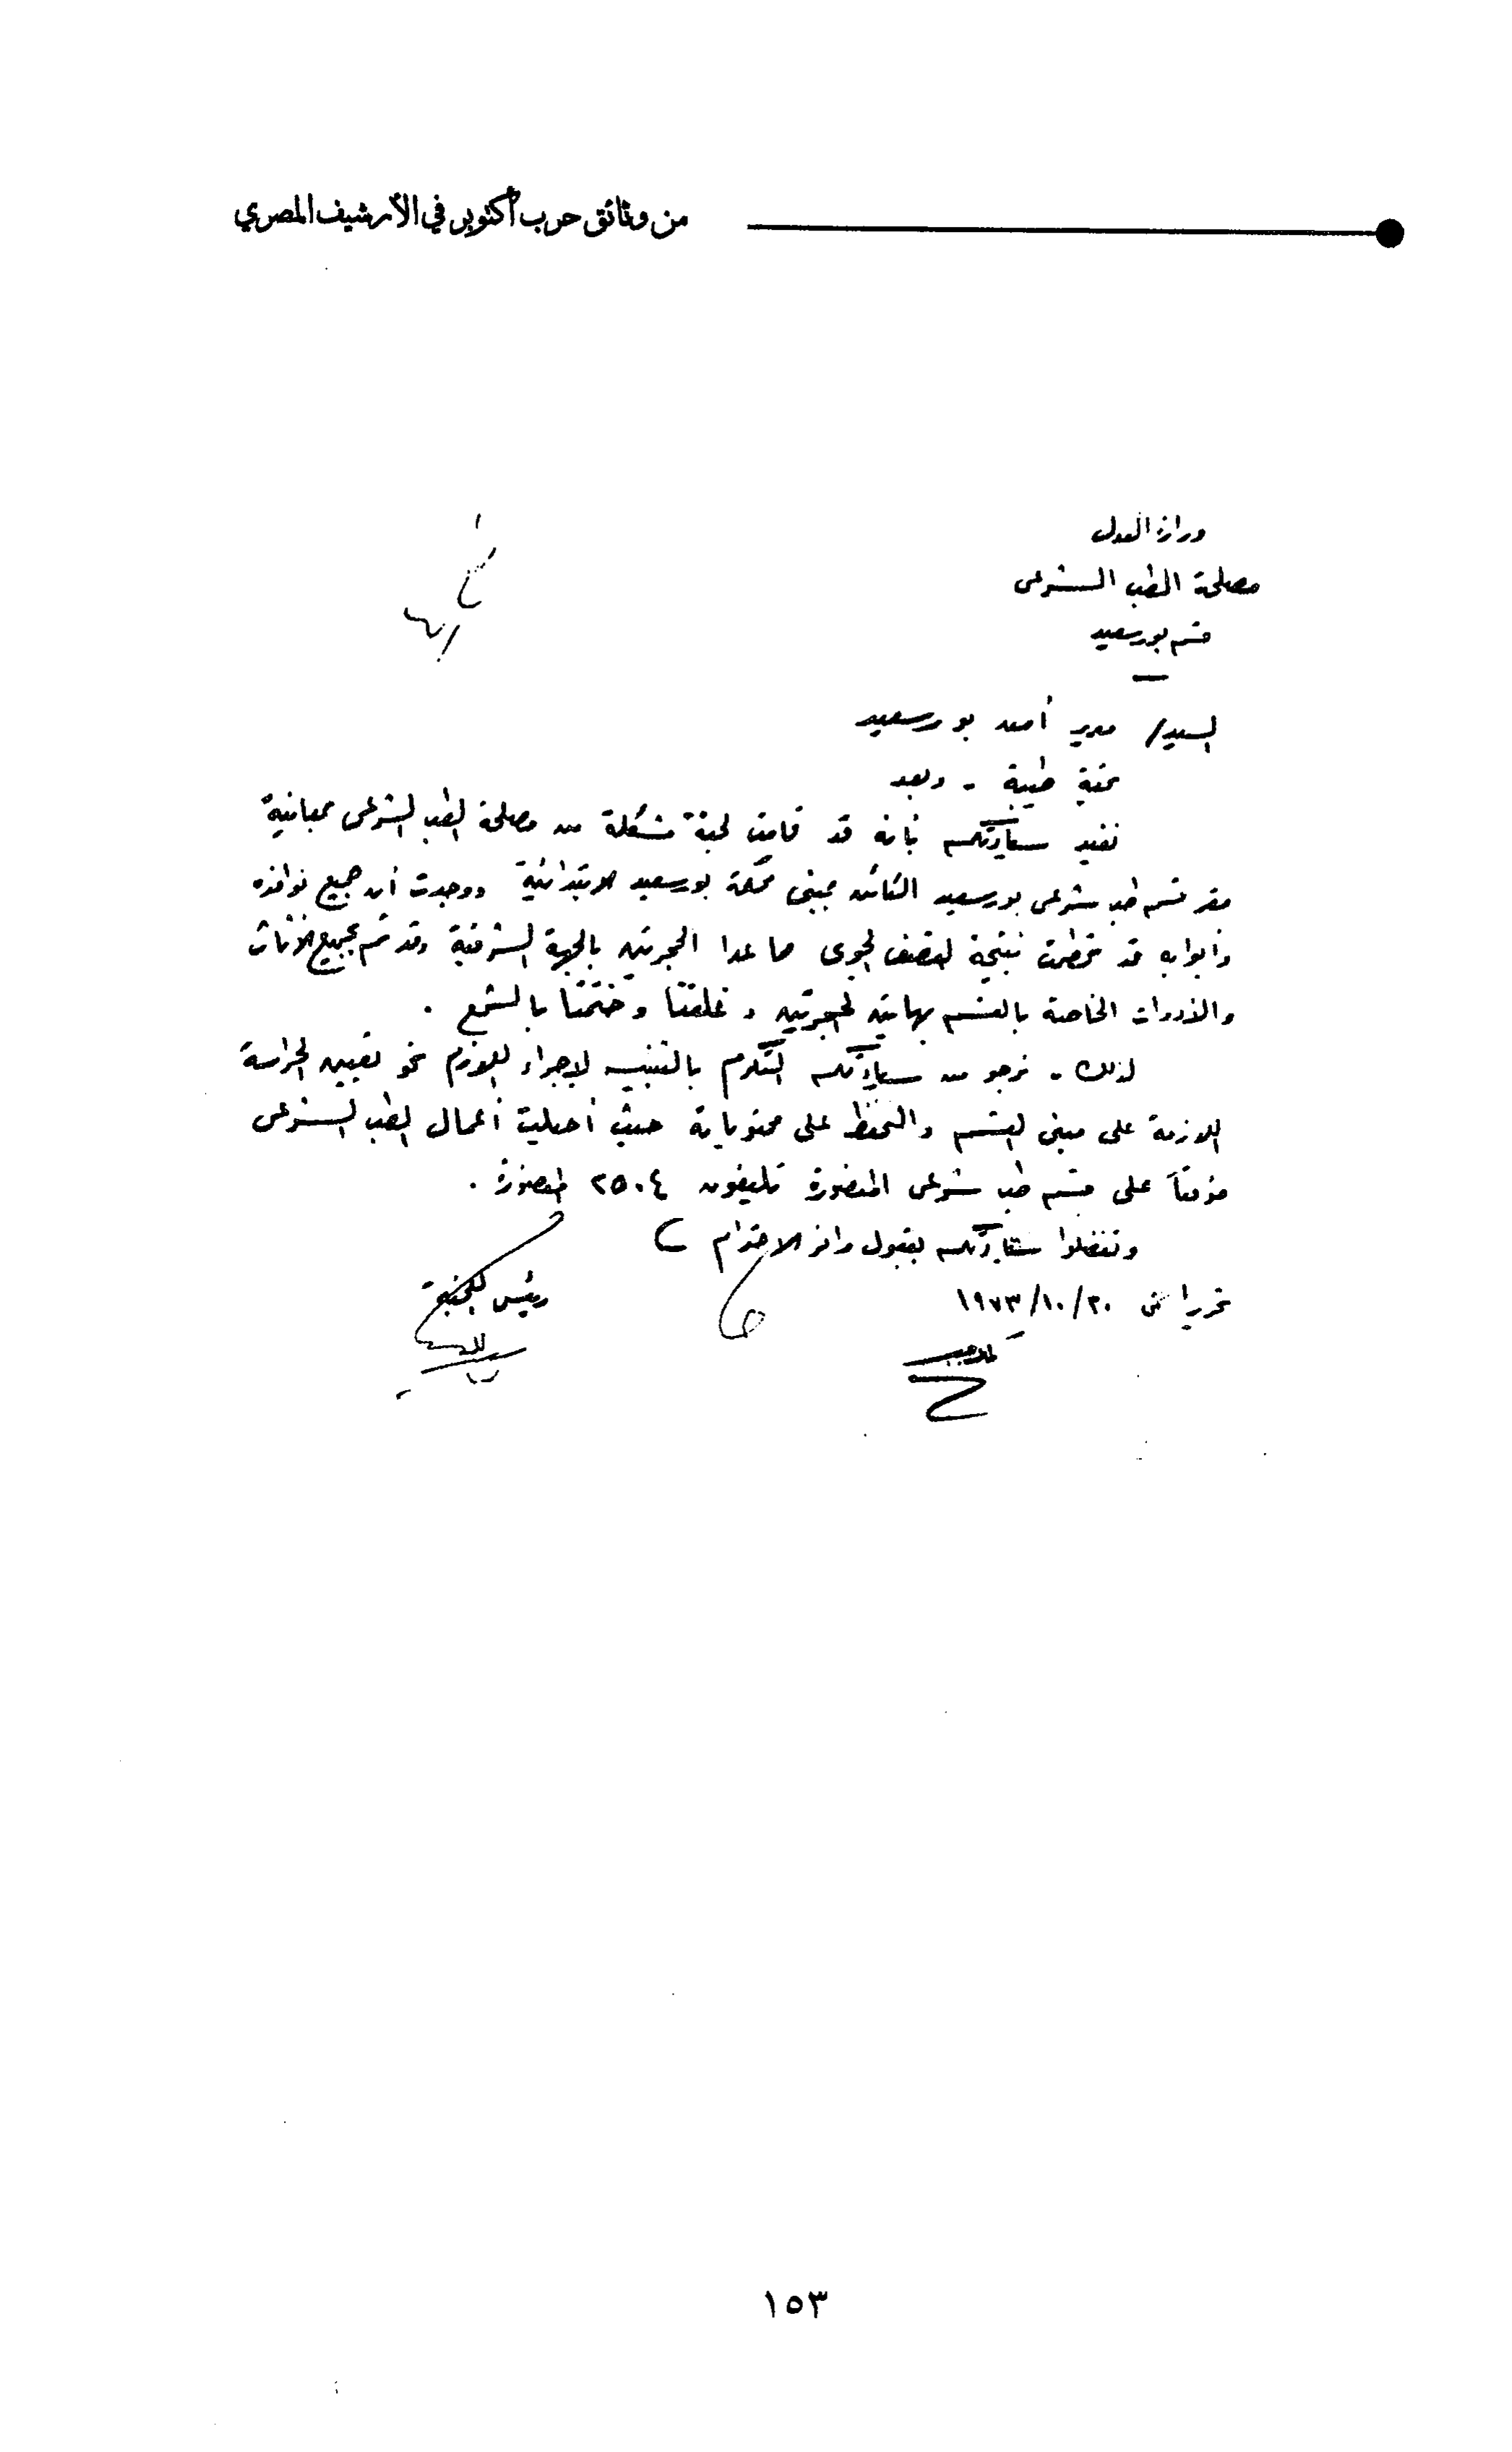 من وثائق حرب أكتوبر في الأرشيف المصري
وزارة العدل
مصلحة الطب الشرعى
قسم بورسعيد
السيد/ مدير أمن بورسعيد
تحية طيبة - وبعد
نفيد سيادتكم بأنه قد قامت لجنة مشكلة من مصلحة الطب الشرعى بمعاينة
مقر قسم طب شرعى بورسعيد الكائن بمبنى محكمة بورسعيد الابتدائية ووجدت أن جميع نوافذه
وأبوابه قد تحطمت نتيجة القصف الجوى ما عدا الحجرتين بالجهة الشرقية وقد تم تجميع الأثاث
والأدوات الخاصة بالقسم بهاتين الحجرتين وغلقتا وختمتا بالشمع .
لذلك - نرجو من سيادتكم التكرم بالتنبيه لإجراء اللازم نحو تعيين الحراسة
اللازمة على مبنى القسم والتحفظ على محتوياته حيث أحيلت أعمال الطب الشرعى
مؤقتاً على قسم طب شرعى المنصورة تليفون ٢٥٠٤ المنصورة .
وتفضلوا سيادتكم بقبول وافر الاحترام
تحريرا فى ٢٠/١٠/١٩٧٣
رئيس اللجنة
١٥٣